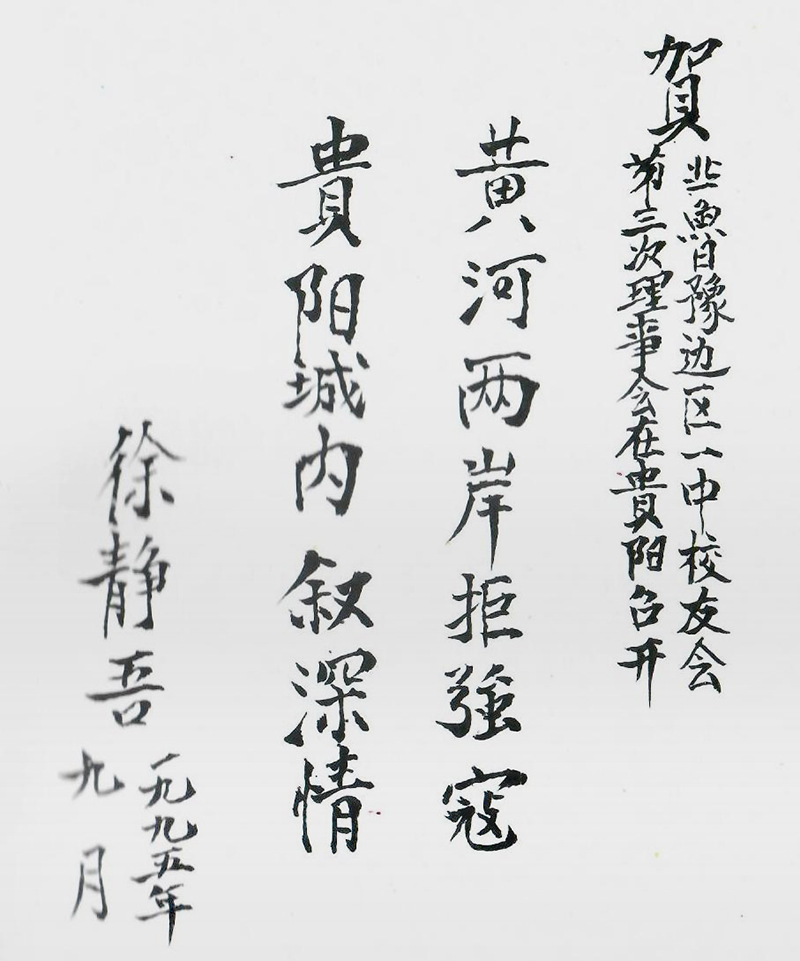 賀
冀魯豫边区一中校友会
第三次理事会在貴阳召开
黄河两岸拒強寇
貴阳城内叙深情
徐静吾
一九九五年
九月